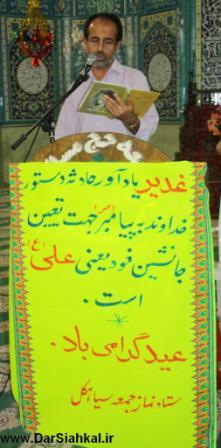 غدیر یادآور حادثه دستور
خداوند به پیامبر (ص) جهت تعیین
جانشین خود یعنی علی (ع)
است.
عید گرامی باد.
ستاد نماز جمعه سیاهکل
www.DarSiahkal.ir